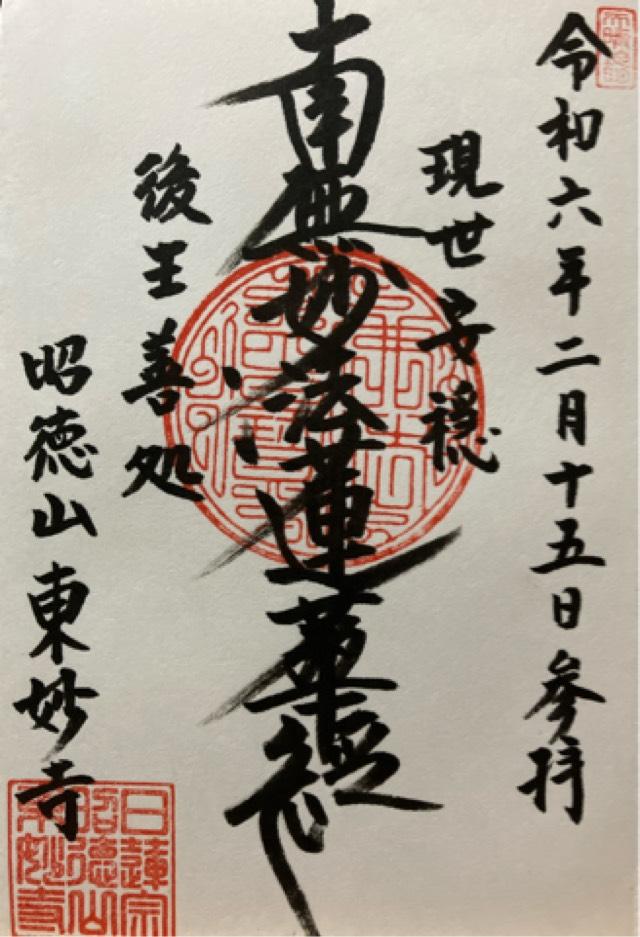 令和六年二月十五日参拝
現世安穏
南無妙法蓮華経
後生善処
昭徳山東妙寺
日蓮宗
昭徳山
東妙寺